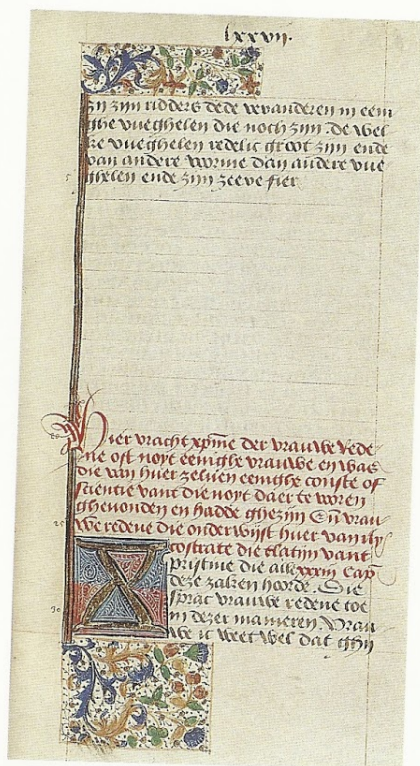 lxxvij.
zij zijn ridders dede veranderen in eeni
ghe vueghelen die noch zijn. de wel
ke vueghelen redelic groot zijn ende
van andere vorme dan andere vue
5
ghelen ende zijn zeere fier
20
Hier vracht xpine der vrauwe rede
ne oft noyt eenighe vrauwe en was
die van huer zelven eenighe conste of
scientie vant die noyt daer te voren
ghevonden en hadde ghezijn En vrau
25
we redene die onderwijst huer van ny
costrate die tlatijn vant xxxiij cap
Xpristine die alle
deze zaken hoorde. Sie
30
sprac vrauwe redene toe
in dezer manieren Vrau
we ic weet wel dat ghij